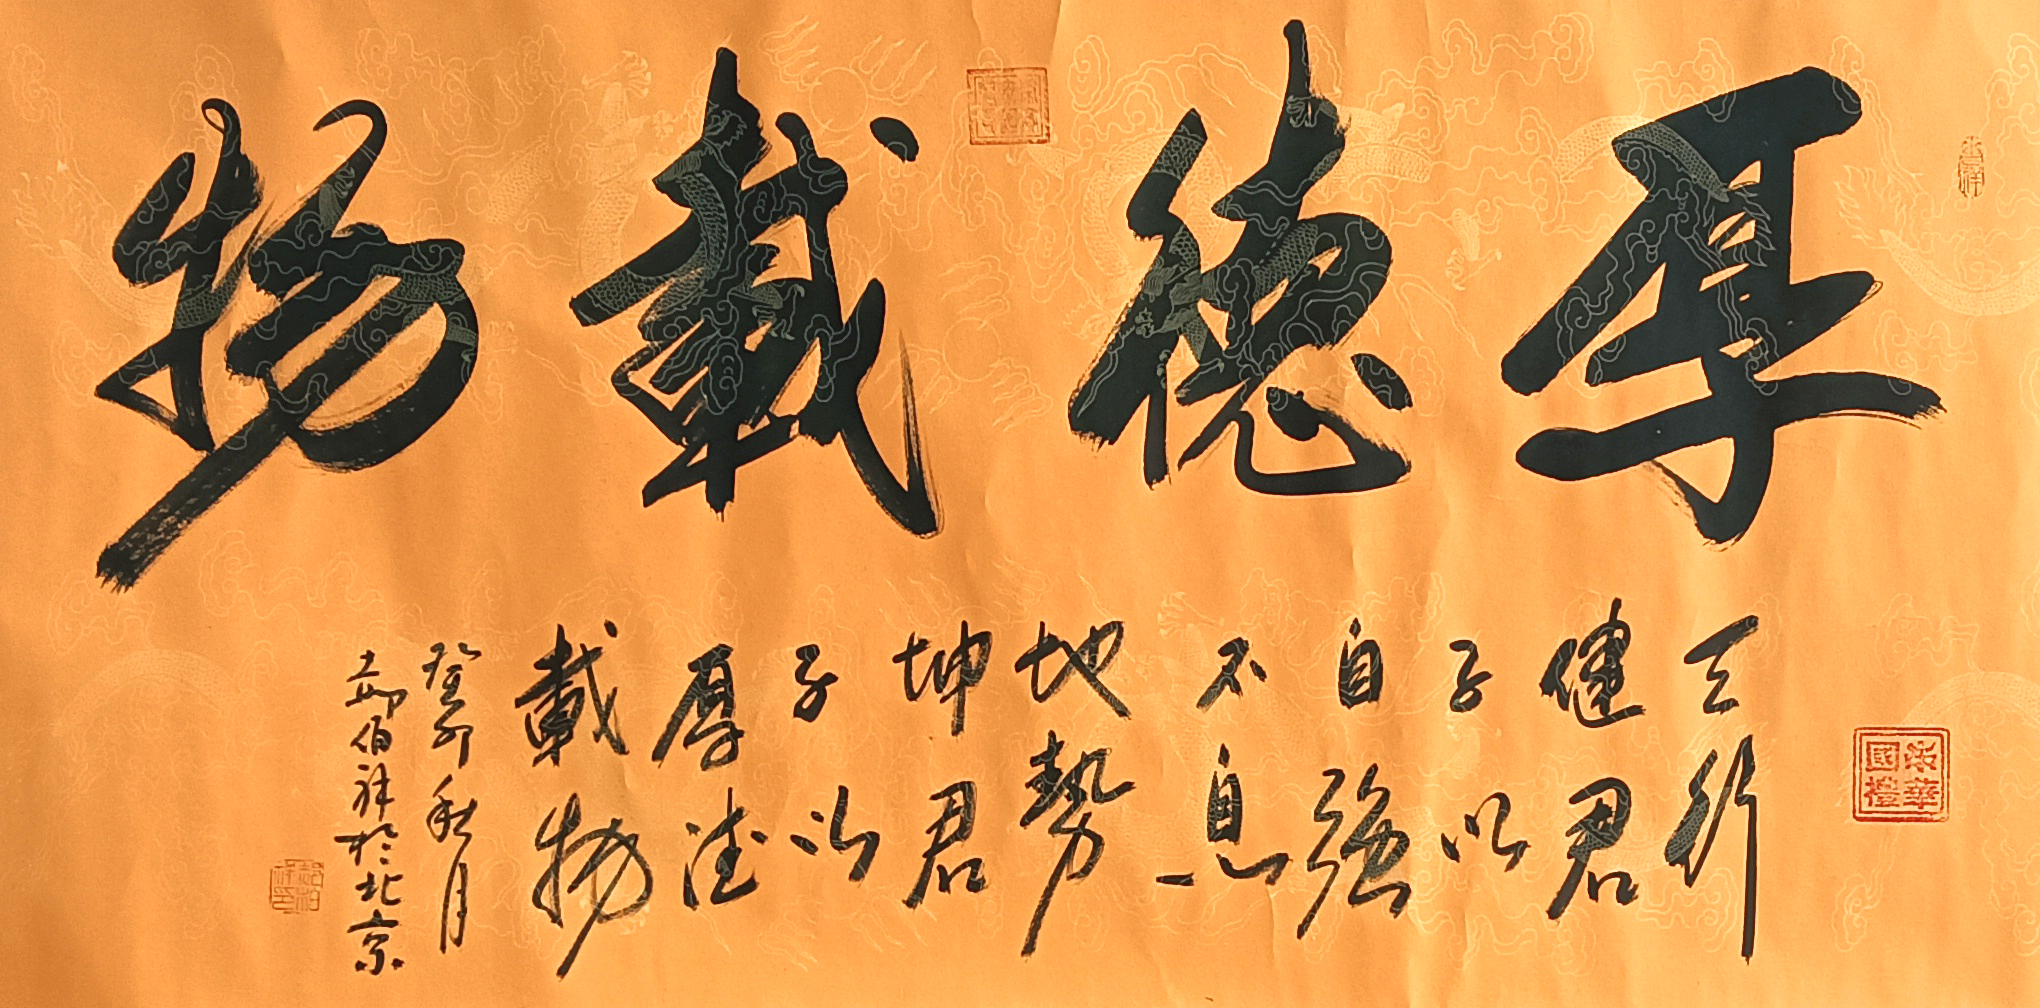 厚德載物
天行
健君
子以
自強
不息
地勢
坤君
子以
厚德
載物
癸卯秋月
郝伯祥於北京
吉祥
中華國禮